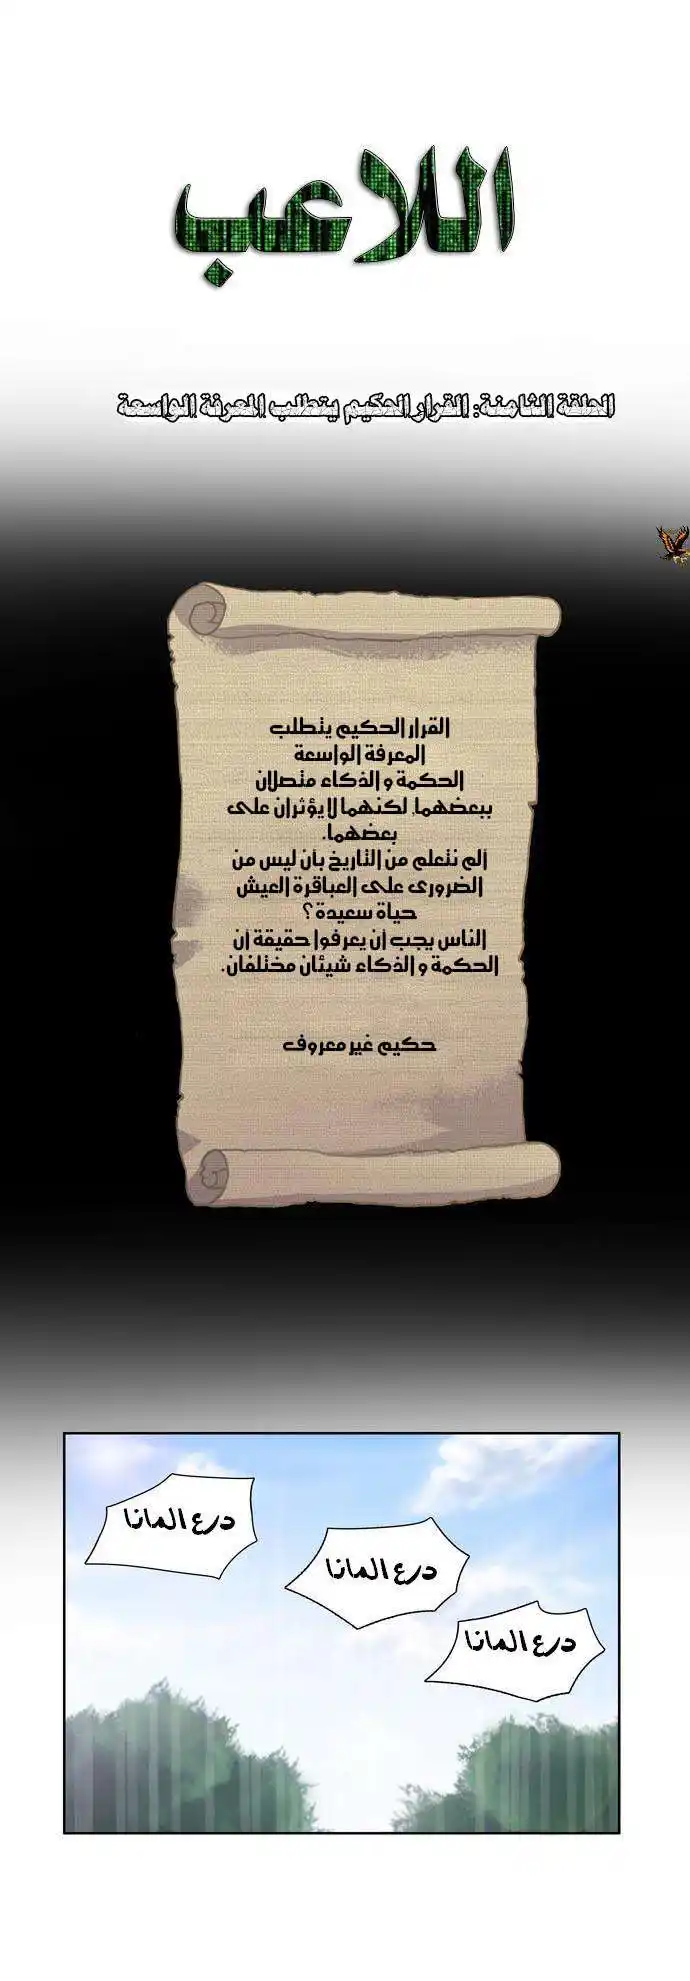 اللاعب
الحلقة الثامنة: القرار الحكيم يتطلب المعرفة الواسعة
القرار الحكيم يتطلب
المعرفة الواسعة
الحكمة و الذكاء متصلان
ببعضهما, لكنهما لا يؤثران على
بعضهما.
ألم نتعلم من التاريخ بأن ليس من
الضرورى على العباقرة العيش
حياة سعيدة؟
الناس يجب أن يعرفوا حقيقة أن
الحكمة و الذكاء شيئان مختلفان.
حكيم غير معروف
درع المانا
درع المانا
درع المانا